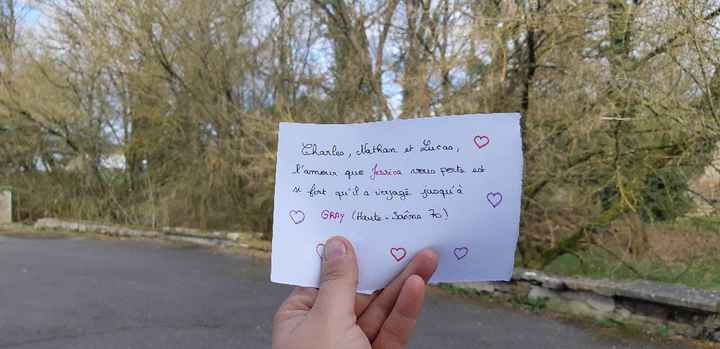 Charles, Nathan et Lucas,
l'amour que Jessica vous porte est
si fort qu'il a voyagé jusqu'à
GRAY (Haute-Saône 70)